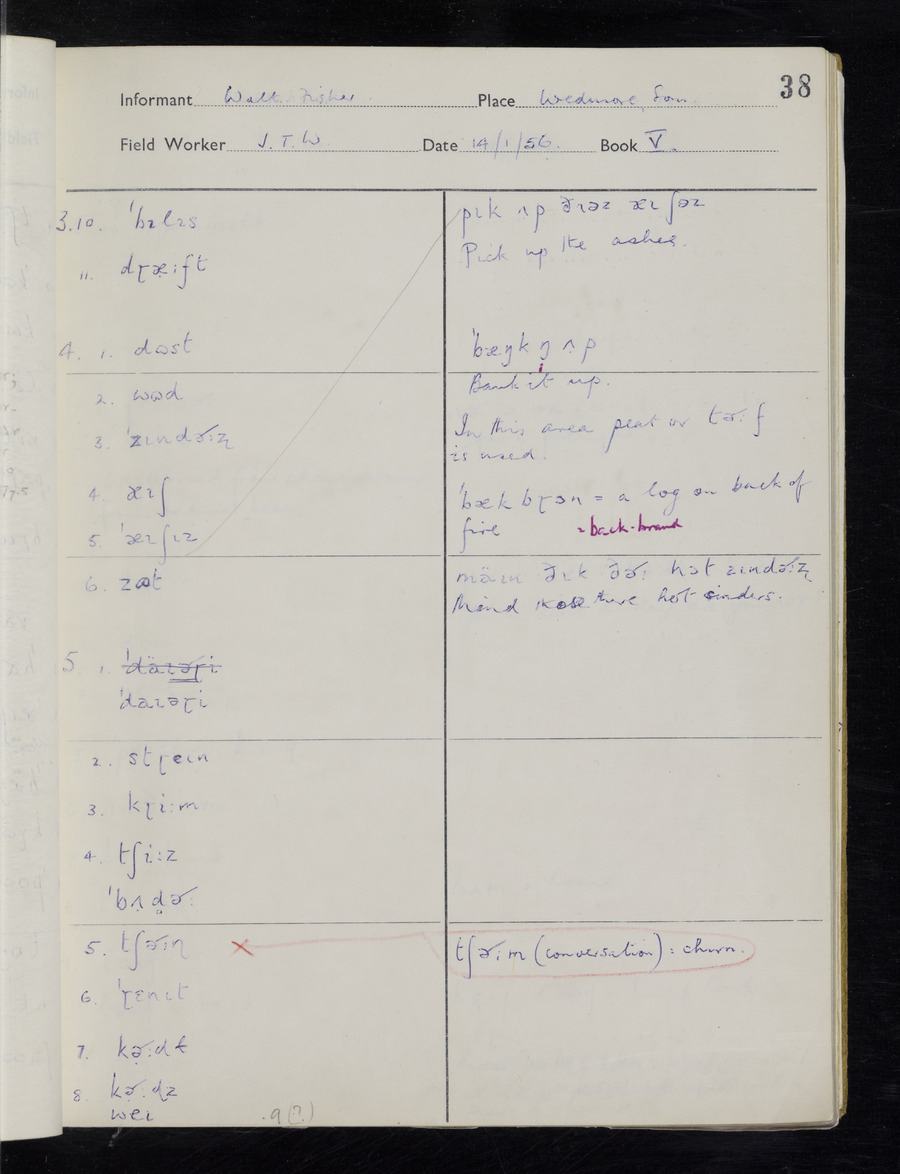 38
Informant Walt. Fisher. Place Wedmore, Som.
Field Worker J. T. W. Date 14/1/56. Book V.
3.10. ˈbɪlɪs
11. dɽæ̣ːft
4. 1. dɷst
2. wɷd
3. ˈzɪndə˞ːʐ
4. æɪʃ
5. ˈæɪʃɪz
6. zɷt
5 1. ˈdäɪəɽi
ˈdaɪəɽi
2. stɽeɪn
3. kɽiːm
4. tʃiːz
ˈbʌḍə˞:
5. tʃə˞ːɳ ×
6. ˈɽɛnɪt
7. kə˞ːdɫ
8. kə˞ːɖz
weɪ .9(?)
pɪk ʌp ðɪəz æɪʃəz
Pick up the ashes.
ˈbæŋk ŋ ʌp
Bank it up.
In this area peat or tə˞ːf
is used.
ˈbæk bɽɔn = a log on back of
fire = back-brand
mäɪn ðɪk ðə˞ː hɔt zɪndə˞ːʐ
Mind those there hot cinders.
tʃə˞ːm (conversation) : churn.